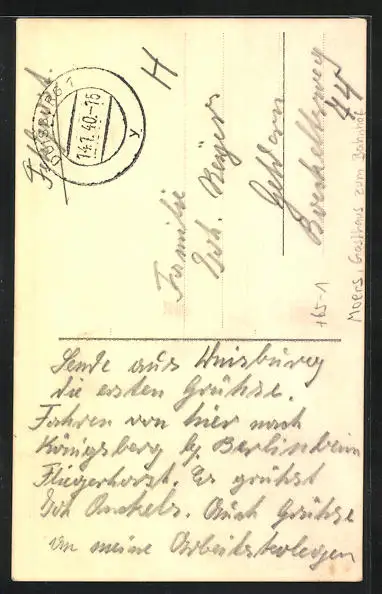 Feldpost.
DUISBURG 1
14.1.40.-16
y
H
Familie
Joh. Beyers
Geldern
Boeckelterweg
44
+65-1
Moers, Gasthaus zum Bahnhof
Sende aus Duisburg
die ersten Grühse.
Fahren von hier nach
Königsberg bg Berlin beim
Fliegerhorst. Es grühst
Joh Buckels. Auch Grühse
an meine Arbeitskolegen